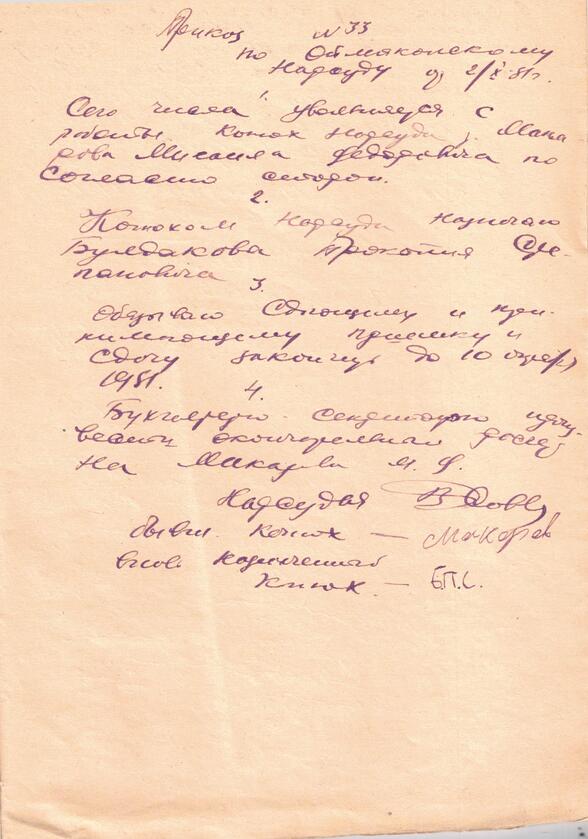 Приказ № 33
по Оймяконскому
Нарсуду от 2/X-51г.
1.
Сего числа увольняется с
работы конюх Нарсуда, Мака
рова Михаила Федоровича по
Согласию сторон.
2.
Конюхом Нарсуда назначаю
Булдакова Прокопия Сте-
пановича
3.
Обязываю Сдающему и при-
нимающему приемку и
Сдачу закончить до 10 октября
1951.
4.
Бухгалтеру секретарю
окончательный
На Макарова М. Ф.
Нарсудья
бывш. конюх — Макаров
вновь назначенный
Конюх — Б.П.С.